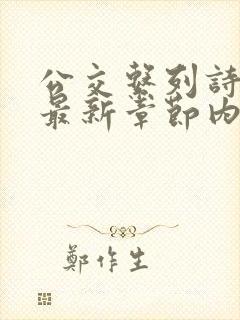 公交繫列詩
最新章節內
鄭作生